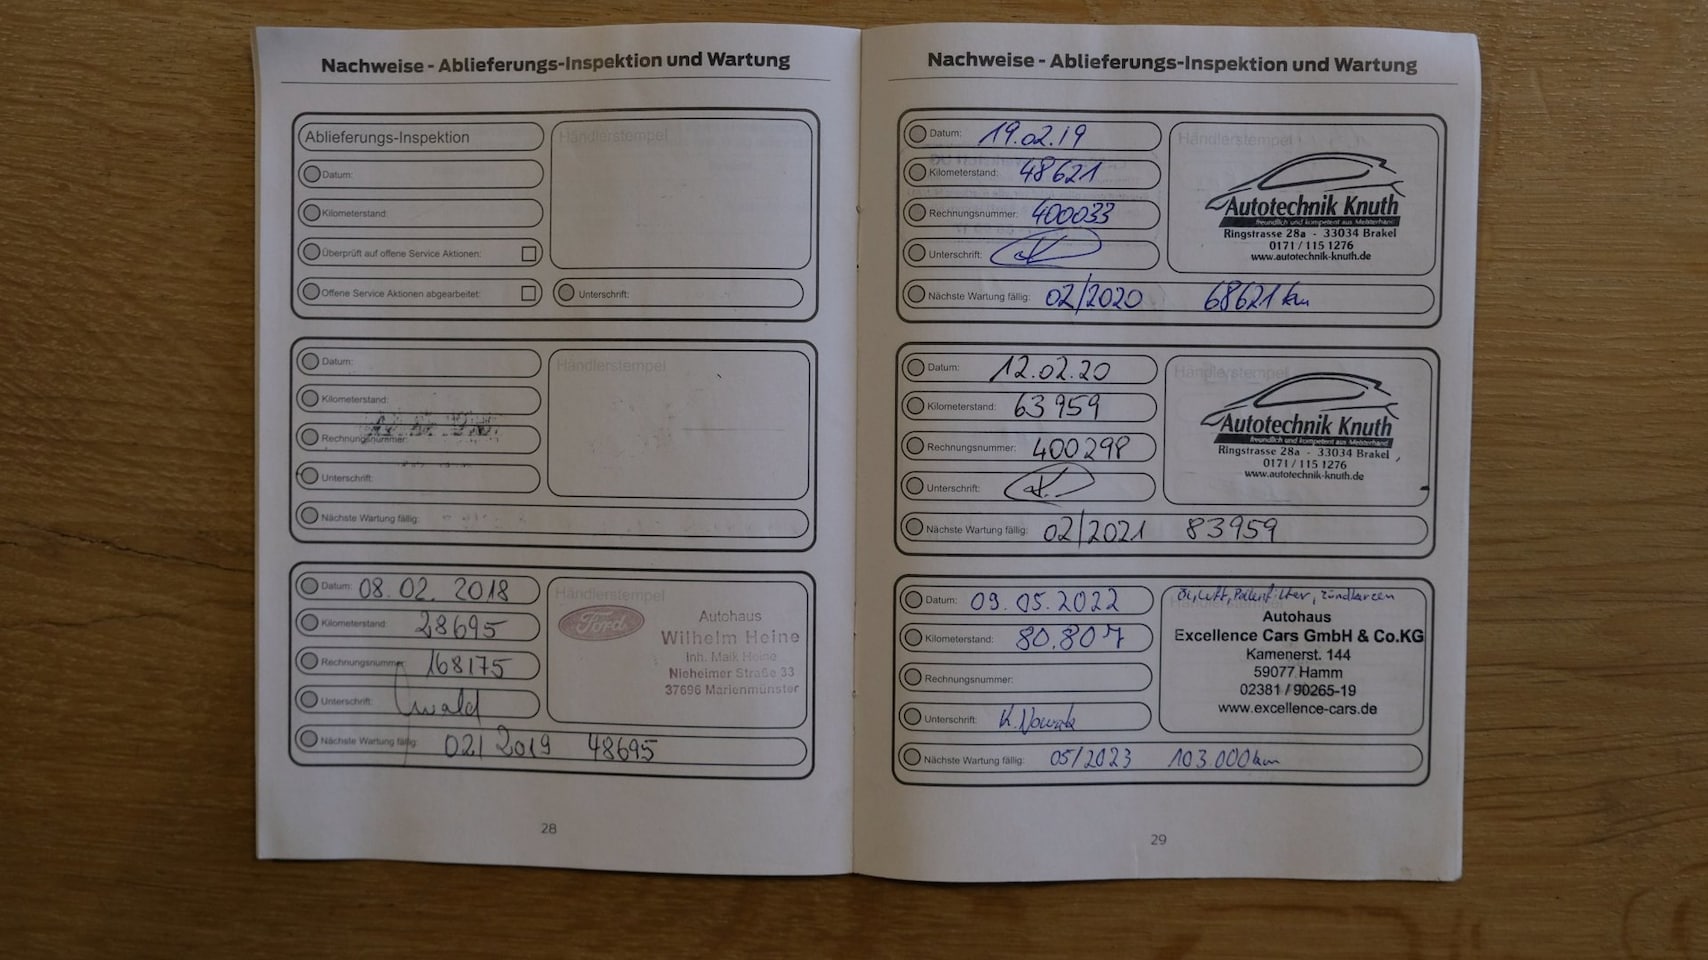 Nachweise - Ablieferungs-Inspektion und Wartung
Ablieferungs-Inspektion
Händlerstempel
Datum:
Kilometerstand:
Überprüft auf offene Service Aktionen:
Offene Service Aktionen abgearbeitet:
Unterschrift:
Datum:
Händlerstempel
Kilometerstand:
Rechnungsnummer:
Unterschrift:
Nächste Wartung fällig:
Datum: 08.02.2018
Kilometerstand: 28695
Rechnungsnummer: 168175
Unterschrift:
Nächste Wartung fällig: 02/2019 48695
Händlerstempel
Ford
Autohaus
Wilhelm Heine
Inh. Maik Heine
Nieheimer Straße 33
37696 Marienmünster
28
Nachweise - Ablieferungs-Inspektion und Wartung
Datum: 19.02.19
Kilometerstand: 48621
Rechnungsnummer: 400033
Unterschrift:
Nächste Wartung fällig: 02/2020 68621 km
Händlerstempel
Autotechnik Knuth
freundlich und kompetent aus Meisterhand
Ringstrasse 28a - 33034 Brakel
0171 / 115 1276
www.autotechnik-knuth.de
Datum: 12.02.20
Kilometerstand: 63959
Rechnungsnummer: 400298
Unterschrift:
Nächste Wartung fällig: 02/2021 83959
Händlerstempel
Autotechnik Knuth
freundlich und kompetent aus Meisterhand
Ringstrasse 28a - 33034 Brakel
0171 / 115 1276
www.autotechnik-knuth.de
Datum: 09.05.2022
Kilometerstand: 80.807
Rechnungsnummer:
Unterschrift: K. Nowak
Nächste Wartung fällig: 05/2023 103.000 km
Öl, Luft, Pollenfilter, Zündkerzen
Händlerstempel
Autohaus
Excellence Cars GmbH & Co.KG
Kamenerst. 144
59077 Hamm
02381 / 90265-19
www.excellence-cars.de
29